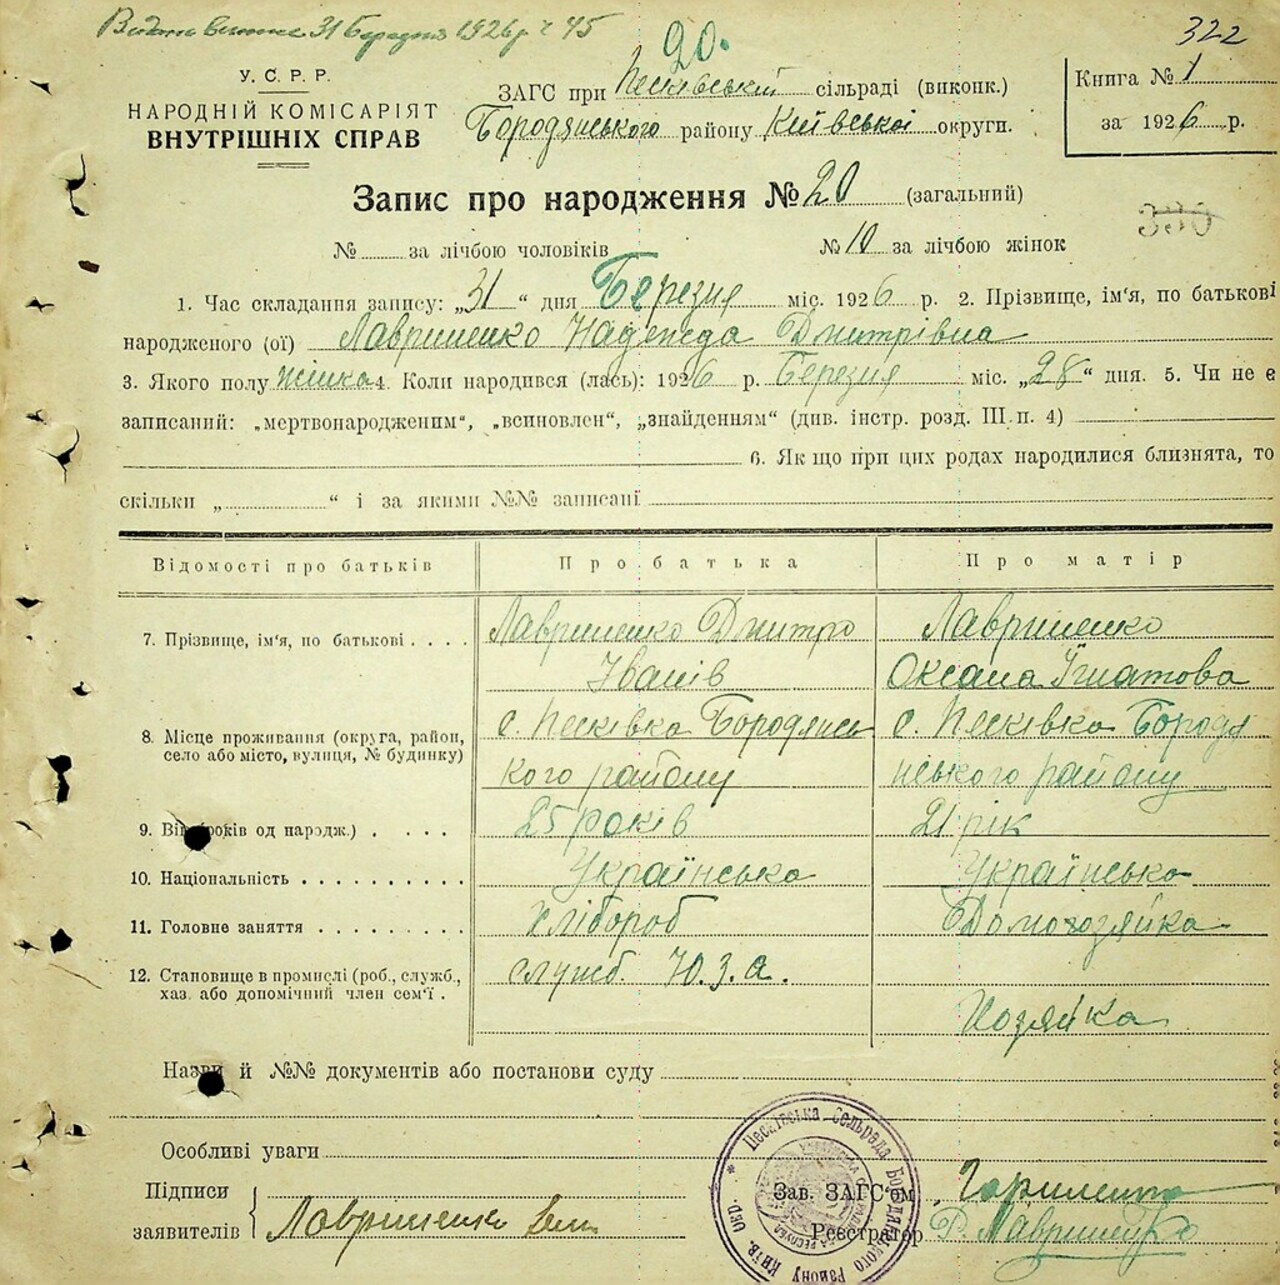 Видана виписка 31 Березня 1926 р ч 45
20.
322
У. С. Р. Р.
НАРОДНІЙ КОМІСАРІЯТ
ВНУТРІШНІХ СПРАВ
ЗАГС при Пєсківській сільраді (виконк.)
Бородянського району Київської округи.
Книга № 1
за 1926 р.
Запис про народження № 20 (загальний)
№ за лічбою чоловіків № 10 за лічбою жінок
1. Час складання запису: „31“ дня Березня міс. 1926 р. 2. Прізвище, ім'я, по батькові
народженого (ої) Лавриненко Надежда Дмитрівна
3. Якого полу жінка 4. Коли народився (лась): 1926 р. Березня міс. „28“ дня. 5. Чи не є
записаний: „мертвонародженим“, „всиновлен“, „знайденням“ (див. інстр. розд. III п. 4)
6. Якщо при цих родах народилися близнята, то
скільки „ “ і за якими №№ записані
Відомості про батьків Про батька Про матір
7. Прізвище, ім'я, по батькові . . . . Лавриненко Дмитро Лавриненко
Іванів Оксана Ігнатова
8. Місце проживання (округа, район, село або місто, вулиця, № будинку) с. Пєсківка Бородянсь с. Пєсківка Бородя
кого району нського району
9. Вік (років од народж.) . . . . 25 років 21 рік
10. Національність . . . . . . . . . . Українська Українська
11. Головне заняття . . . . . . . . . Хлібороб Домохозяйка
12. Становище в промислі (роб., служб., хаз. або допомічний член сем'ї . служб. Ю.З.а.
Хозяйка
Назви й №№ документів або постанови суду
Особливі уваги
Підписи
заявителів Лавриненко
Зав. ЗАГС'ом
Реєстратор Лавриненко
Пєсківська Сельрада Бородянського Району Київ. Окр.